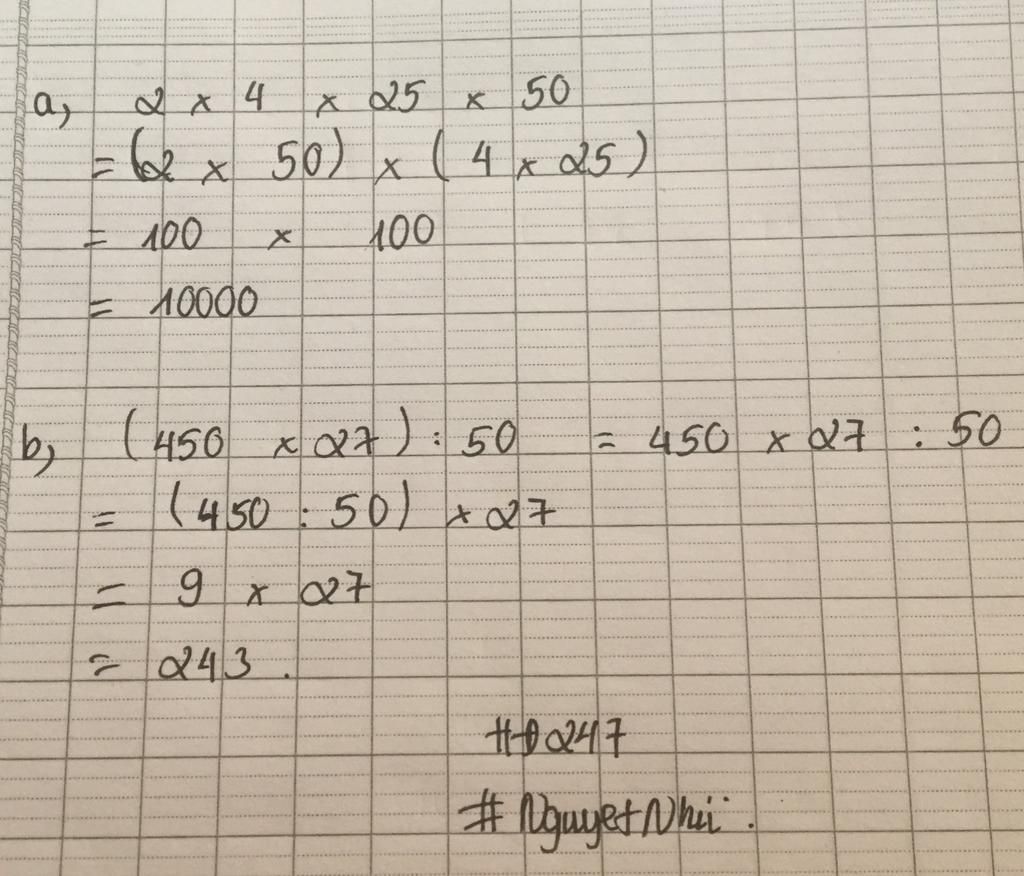 a, 2 x 4 x 25 x 50
= (2 x 50) x ( 4 x 25 )
= 100 x 100
= 10000
b, (450 x 27) : 50 = 450 x 27 : 50
= (450 : 50) x 27
= 9 x 27
= 243 .
#Đ247
# NguyetNhii .